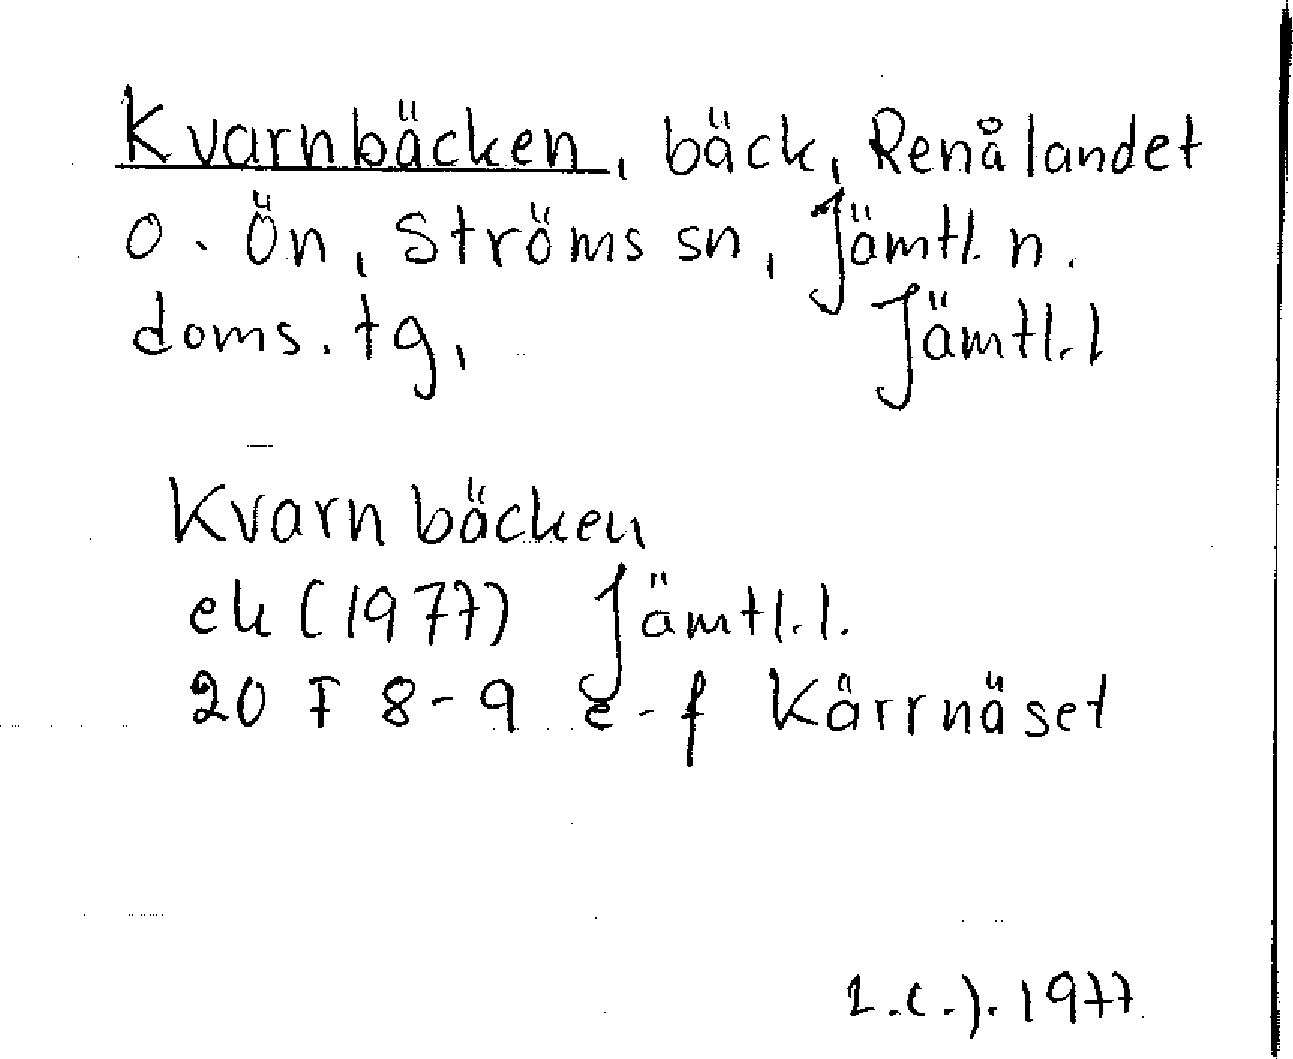 Kvarnbäcken, bäck, Renålandet
o. Ön, Ströms sn, Jämtl. n.
doms. tg, Jämtl. l
Kvarnbäcken
ek (1977) Jämtl. l.
20 F 8-9 e-f Kärrnäset
1977